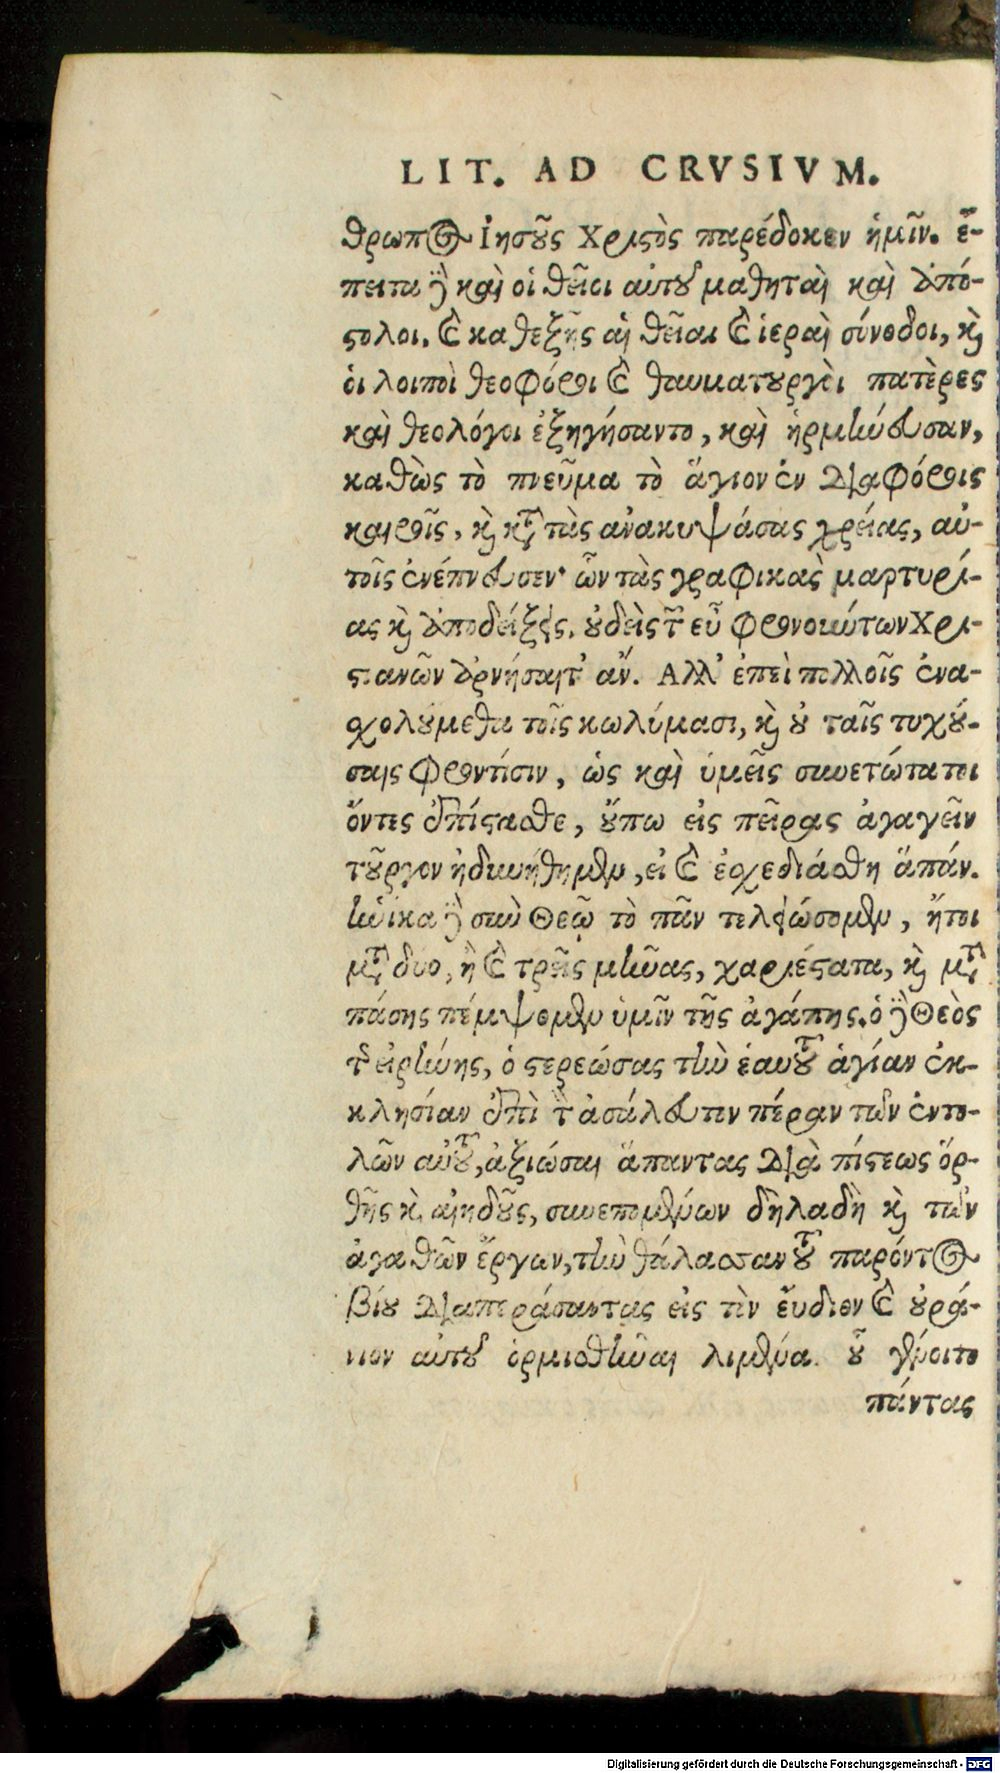 LIT. AD CRVSIVM.
θρωπος Ἰησοῦς Χριστὸς παρέδοκεν ἡμῖν. ἔ-
πειτα δὲ καὶ οἱ θεῖοι αὐτοῦ μαθηταὶ καὶ ἀπό-
στολοι. καὶ καθεξῆς αἱ θεῖαι καὶ ἱεραὶ σύνοδοι, καὶ
οἱ λοιποὶ θεοφόροι καὶ θαυματουργοὶ πατέρες
καὶ θεολόγοι ἐξηγήσαντο, καὶ ἡρμήνευσαν,
καθὼς τὸ πνεῦμα τὸ ἅγιον ἐν διαφόροις
καιροῖς, καὶ κατὰ τὰς ἀνακυψάσας χρείας, αὐ-
τοῖς ἐνέπνευσεν· ὧν τὰς γραφικὰς μαρτυρί-
ας καὶ ἀποδείξεις, οὐδεὶς τῶν εὖ φρονούντων Χρι-
στιανῶν ἀρνήσαιτ' ἄν. Ἀλλ' ἐπεὶ πολλοῖς ἐνα-
σχολούμεθα τοῖς κωλύμασι, καὶ οὐ ταῖς τυχού-
σαις φροντίσιν, ὡς καὶ ὑμεῖς συνετώτατοι
ὄντες ἐπίστασθε, οὔπω εἰς πεῖρας ἀγαγεῖν
τοῦργον ἠδυνήθημεν, εἰ καὶ ἐσχεδιάσθη ἅπάν.
ἡνίκα δὲ σὺν Θεῷ τὸ πᾶν τελειώσομεν, ἤτοι
μετὰ δυο, ἢ καὶ τρεῖς μῆνας, χαριέστατα, καὶ μετὰ
πάσης πέμψομεν ὑμῖν τῆς ἀγάπης. ὁ δὲ Θεὸς
τῆς εἰρήνης, ὁ στερεώσας τὴν ἑαυτοῦ ἁγίαν ἐκ-
κλησίαν ἐπὶ τὴν ἀσάλευτον πέτραν τῶν ἐντο-
λῶν αὐτοῦ, ἀξιώσαι ἅπαντας διὰ πίστεως ὅρ-
θῆς καὶ αἰηδοῦς, συνεπομένων δηλαδὴ καὶ τῶν
ἀγαθῶν ἔργων, τὴν θάλασσαν τοῦ παρόντος
βίου διαπεράσαντας εἰς τὸν εὔδιον καὶ οὐρά-
νιον αὐτοῦ ὁρμισθῆναι λιμένα. οὗ γένοιτο
πάντας
Digitalisierung gefördert durch die Deutsche Forschungsgemeinschaft - DFG